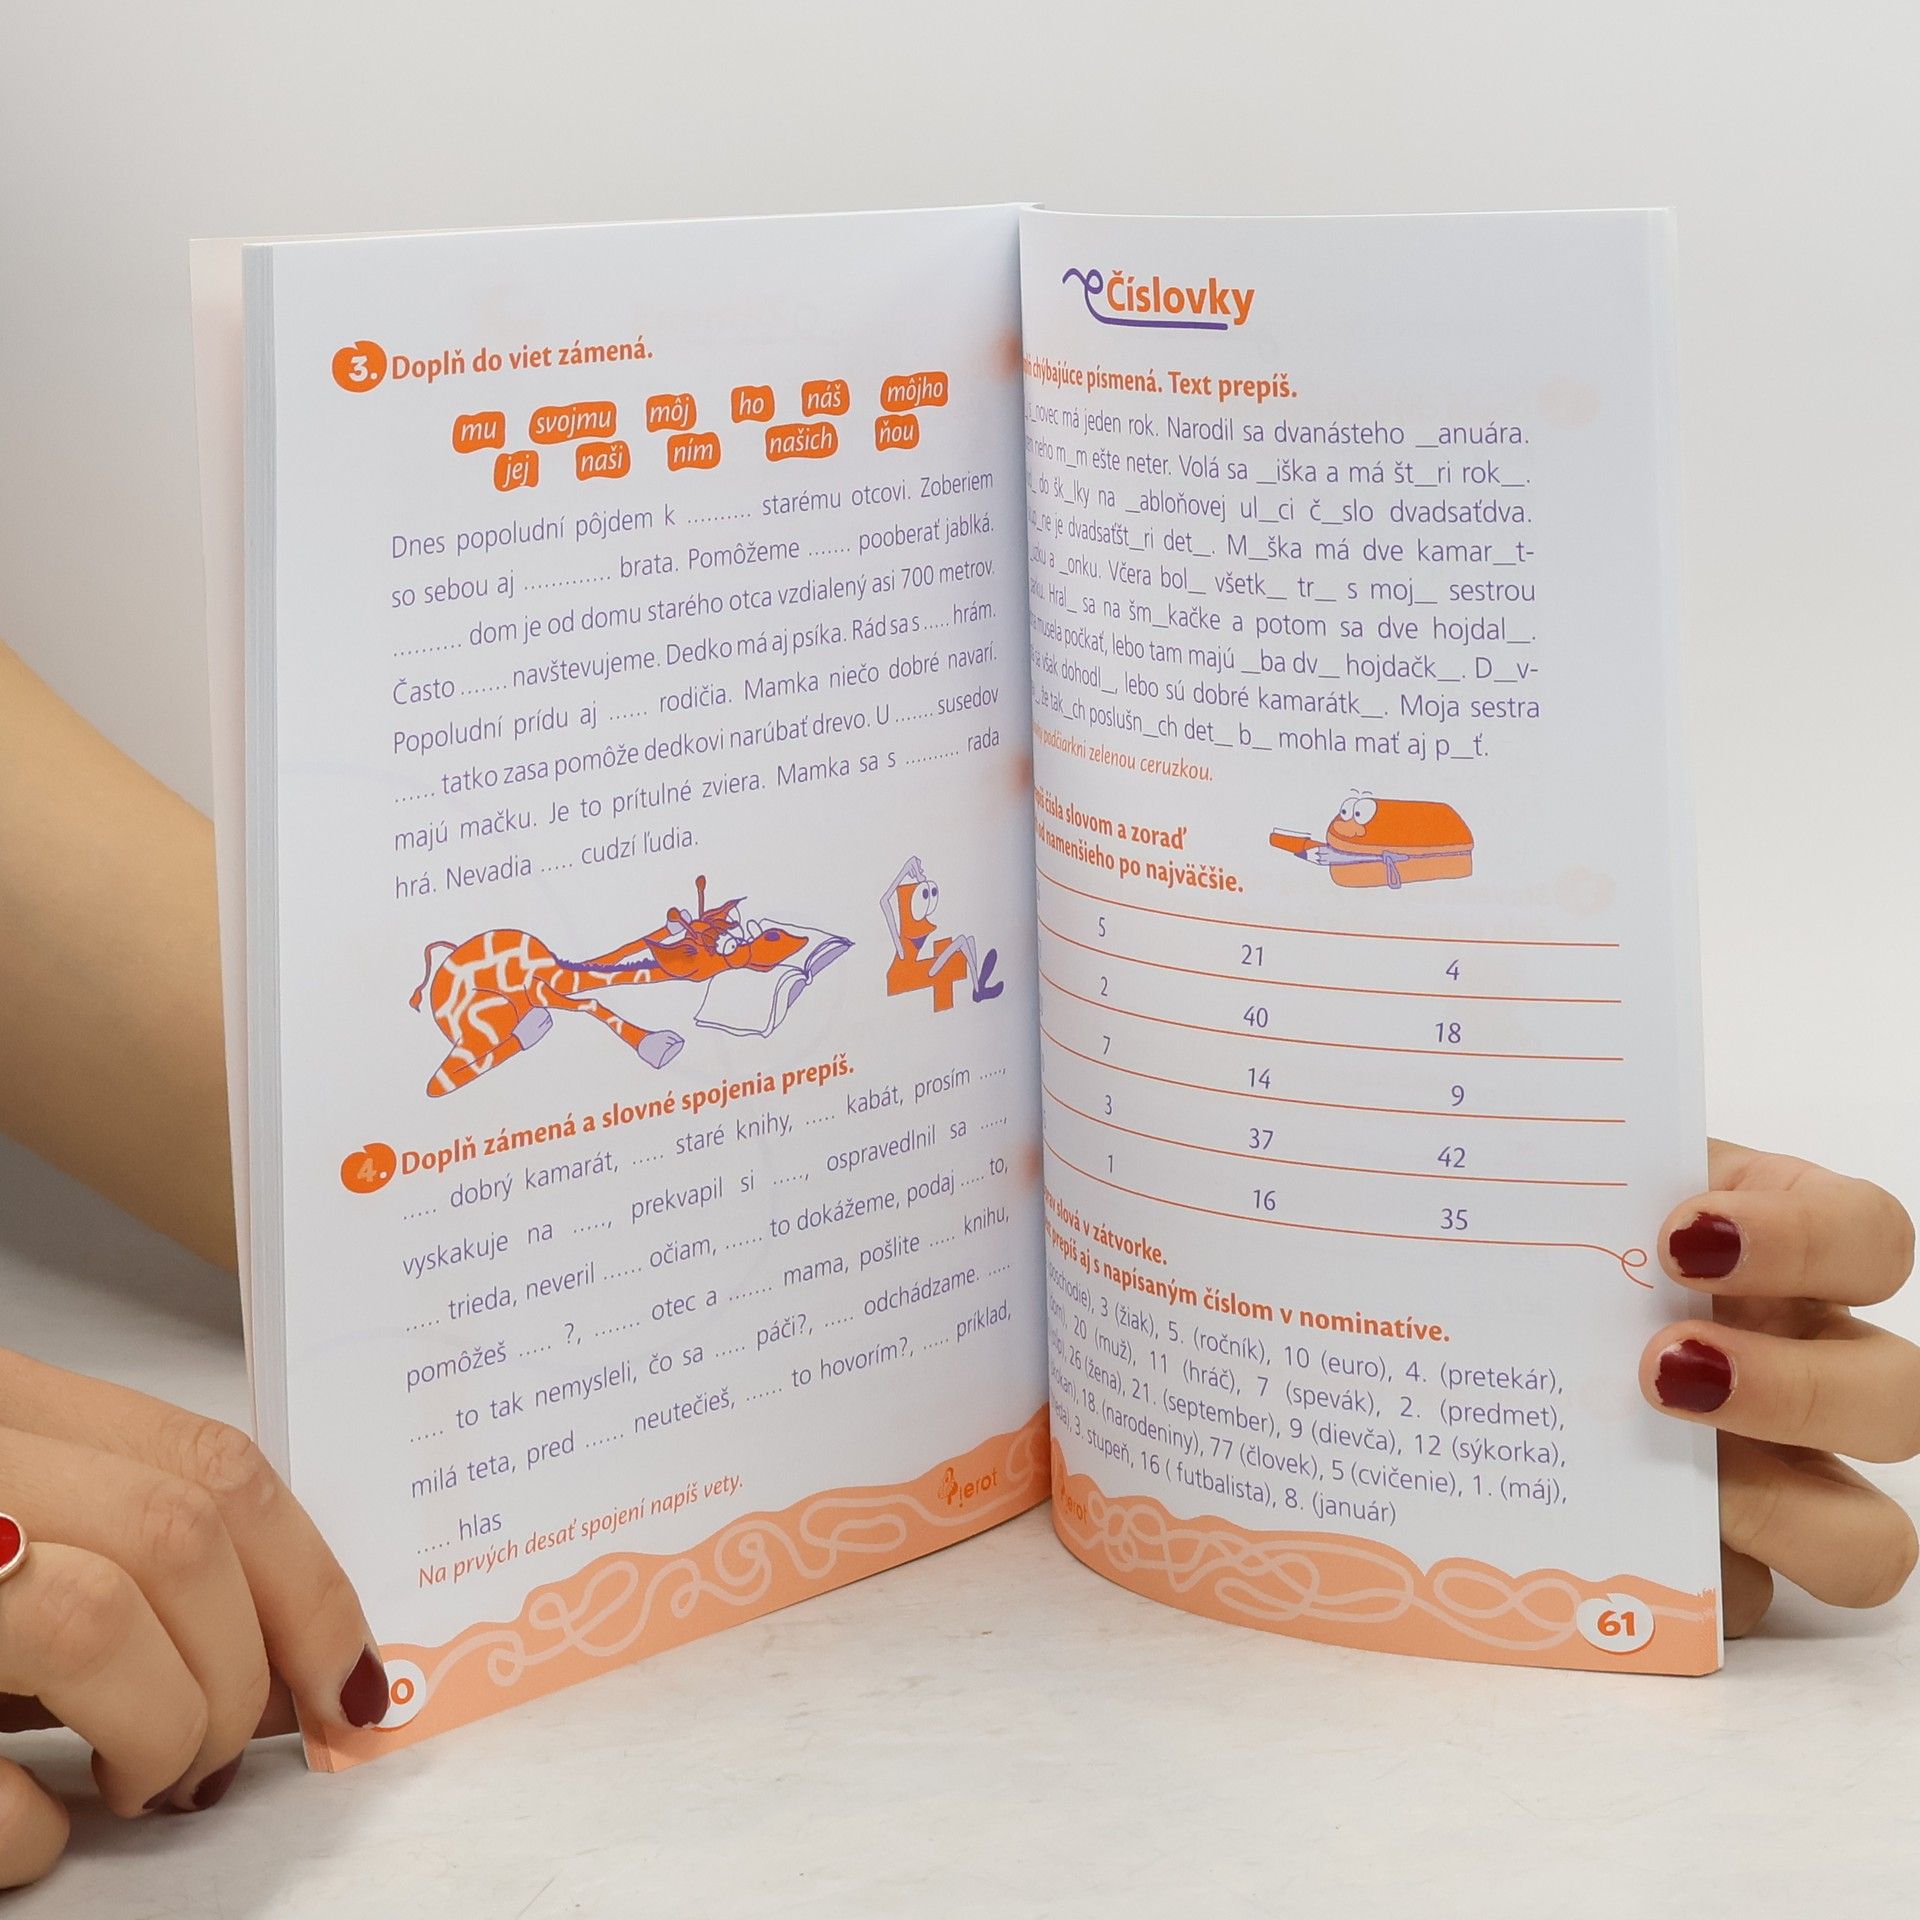 3. Doplň do viet zámená.
mu svojmu môj ho náš môjho
jej naši ním našich ňou
Dnes popoludní pôjdem k .......... starému otcovi. Zoberiem
so sebou aj ............. brata. Pomôžeme ....... pooberať jablká.
.......... dom je od domu starého otca vzdialený asi 700 metrov.
Často ....... navštevujeme. Dedko má aj psíka. Rád sa s ..... hrám.
Popoludní prídu aj ...... rodičia. Mamka niečo dobré navarí.
...... tatko zasa pomôže dedkovi narúbať drevo. U ....... susedov
majú mačku. Je to prítulné zviera. Mamka sa s .......... rada
hrá. Nevadia ..... cudzí ľudia.
4. Doplň zámená a slovné spojenia prepíš.
..... dobrý kamarát, ..... staré knihy, ..... kabát, prosím .....,
vyskakuje na ....., prekvapil si ....., ospravedlnil sa .....,
..... trieda, neveril ...... očiam, ...... to dokážeme, podaj ..... to,
pomôžeš ..... ?, ....... otec a ....... mama, pošlite ..... knihu,
..... to tak nemysleli, čo sa ..... páči?, ..... odchádzame. .....
milá teta, pred ...... neutečieš, ...... to hovorím?, ..... príklad,
..... hlas
Na prvých desať spojení napíš vety.
Pierot
0
Číslovky
chýbajúce písmená. Text prepíš.
_novec má jeden rok. Narodil sa dvanásteho __anuára.
neho m__m ešte neter. Volá sa __iška a má št__ri rok__.
do šk__lky na __abloňovej ul__ci č__slo dvadsaťdva.
__ne je dvadsaťšt__ri det__. M__ška má dve kamar__t-
a _onku. Včera bol__ všetk__ tr__ s moj__ sestrou
Hral__ sa na šm__kačke a potom sa dve hojdal__.
musela počkať, lebo tam majú __ba dv__ hojdačk__. D__v-
sa však dohodl__, lebo sú dobré kamarátk__. Moja sestra
že tak__ch poslušn__ch det__ b__ mohla mať aj p__ť.
podčiarkni zelenou ceruzkou.
čísla slovom a zoraď
od namenšieho po najväčšie.
5 21 4
2 40 18
7 14 9
3 37 42
1 16 35
slová v zátvorke.
prepíš aj s napísaným číslom v nominatíve.
poschodie), 3 (žiak), 5. (ročník), 10 (euro), 4. (pretekár),
20 (muž), 11 (hráč), 7 (spevák), 2. (predmet),
26 (žena), 21. (september), 9 (dievča), 12 (sýkorka),
18. (narodeniny), 77 (človek), 5 (cvičenie), 1. (máj),
3. stupeň, 16 ( futbalista), 8. (január)
61